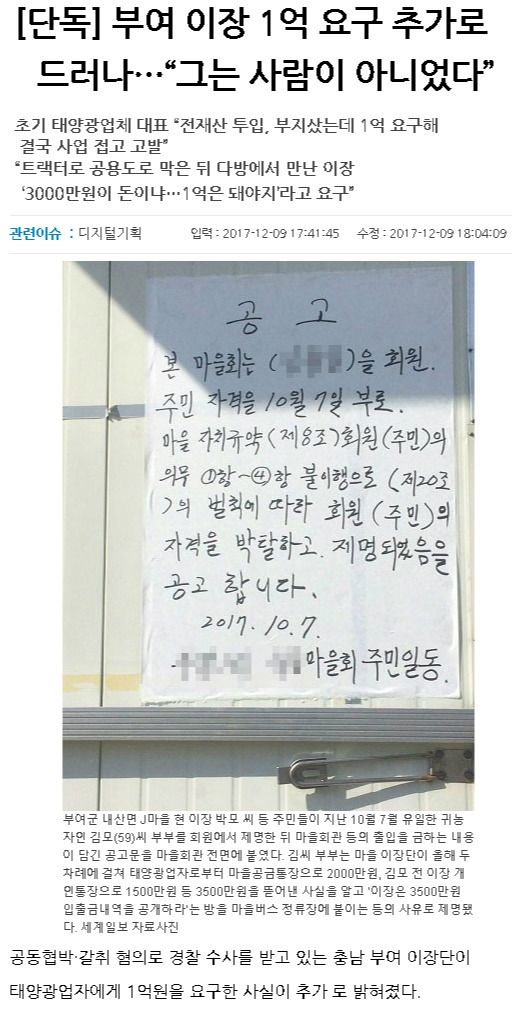 [단독] 부여 이장 1억 요구 추가로
드러나…“그는 사람이 아니었다”
초기 태양광업체 대표 “전재산 투입, 부지샀는데 1억 요구해
결국 사업 접고 고발”
“트랙터로 공용도로 막은 뒤 다방에서 만난 이장
‘3000만원이 돈이냐…1억은 돼야지’라고 요구”
관련이슈 : 디지털기획
입력 : 2017-12-09 17:41:45 수정 : 2017-12-09 18:04:09
공 고
본 마을회는 ( )을 회원.
주민 자격을 10월 7일 부로.
마을 자치규약 (제8조)회원(주민)의
의무 ①항~④항 불이행으로 (제20조
)의 벌칙에 따라 회원 (주민)의
자격을 박탈하고. 제명되었음을
공고 합니다.
2017. 10. 7.
마을회 주민일동.
부여군 내산면 J마을 현 이장 박모 씨 등 주민들이 지난 10월 7일 유일한 귀농
자연 김모(59)씨 부부를 회원에서 제명한 뒤 마을회관 등의 출입을 금하는 내용
이 담긴 공고문을 마을회관 전면에 붙였다. 김씨 부부는 마을 이장단이 올해 두
차례에 걸쳐 태양광업자로부터 마을공금통장으로 2000만원, 김모 전 이장 개
인통장으로 1500만원 등 3500만원을 뜯어낸 사실을 알고 '이장은 3500만원
입출금내역을 공개하라'는 방을 마을버스 정류장에 붙이는 등의 사유로 제명됐
다. 세계일보 자료사진
공동협박·갈취 혐의로 경찰 수사를 받고 있는 충남 부여 이장단이
태양광업자에게 1억원을 요구한 사실이 추가 로 밝혀졌다.